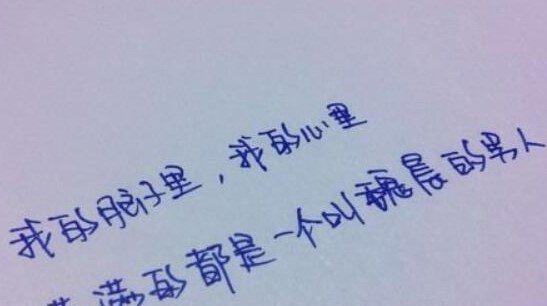 我的脑子里，我的心里
满满的都是一个叫魏晨的男人